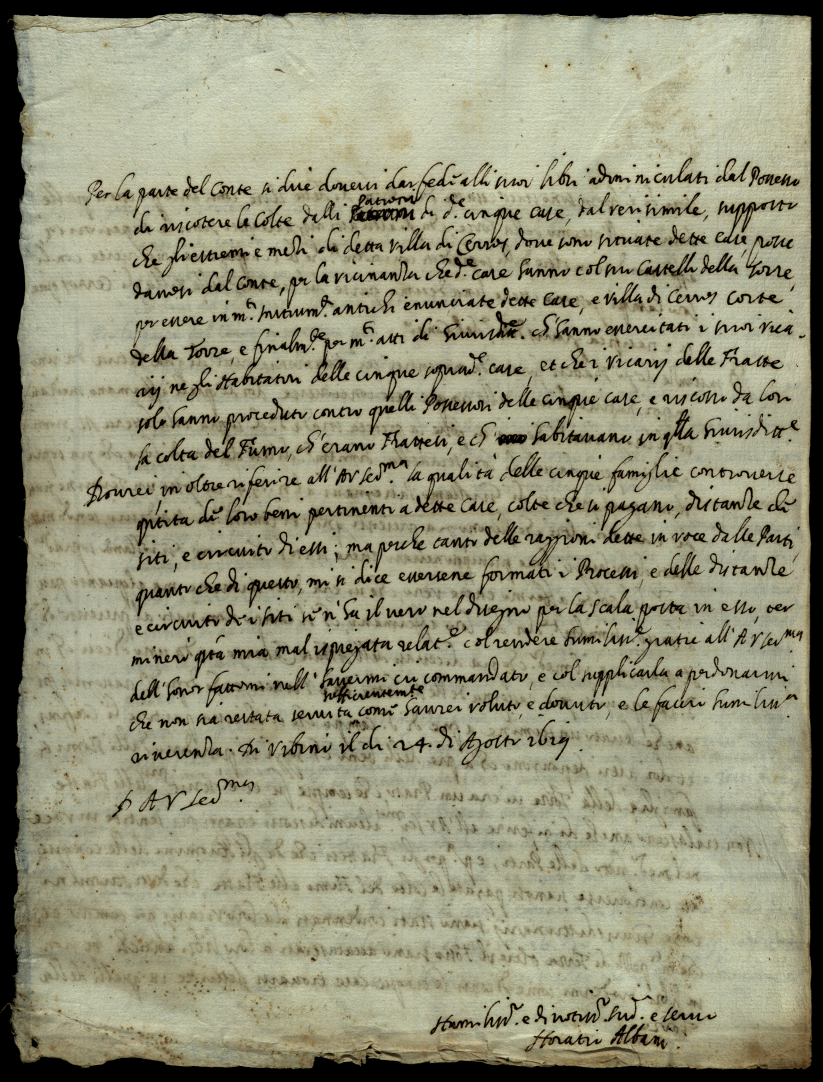 Per la parte del Conte si dice doversi dar fede alli suoi libri adminiculati dal Possesso
di riscotere le Colte dalli Patroni di d.e cinque case, dal verisimile, supposto
che gli estremi e medii di detta villa di Cerres, dove sono situate dette case, posse
dansi dal Conte, per la vicinanza che d.e case hanno col suo Castello della Torre,
per essere in m.ti Instrum.ti antichi enunciate dette Case, e villa di Cerres Corte
della Torre, e finalm.te per m.ti atti di Giurisd.ne ch'hanno essercitati i suoi Vica-
rij negli Habitatori delle cinque case, et che i Vicarij delle Fratte
solo hanno proceduto contro quelli Possessori delle cinque case, e riscosso da loro
la colta del Fumo, ch'erano Frattesi, e ch' habitavano in q.lla Giurisditt.e
Dovrei in oltre riferire all'AV Ser.ma la qualità delle cinque famiglie controverse
q.tità de loro beni pertinenti a dette Case, colte che si pagano, distanze de
siti, e circuito di essi; ma perche tanto delle raggioni dette in voce dalle Parti,
quanto che di questo, mi si dice essersene formati i Processi, e delle distanze
e circuito de i siti se n'ha il vero nel disegno per la scala posta in esso, ter
minerò q.ta mia mal spiegata relat.e col rendere humiliss.e gratie all'AV Ser.ma
dell'honor fattomi nell'havermi ciò commandato, e col supplicarla a perdonarmi
che non sia restata servita sufficientem.te come haurei voluto, e dovuto, e le faccio humiliss.a
riverenza. Di Urbino il dì 24 di Agosto 1619.
D AV Ser.ma
Humiliss.o e divotiss.o sud.o e servo
Horatio Albani.